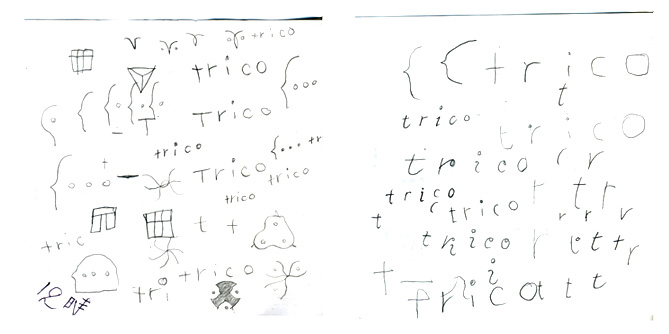 trico
trico
Trico
trico
tr
Trico
trico
trico
t t
tric
trico
tri
trico
t
trico
trico
trico r
trico r t r
trico r r r
t
trico r t t r
t
Tricat t t